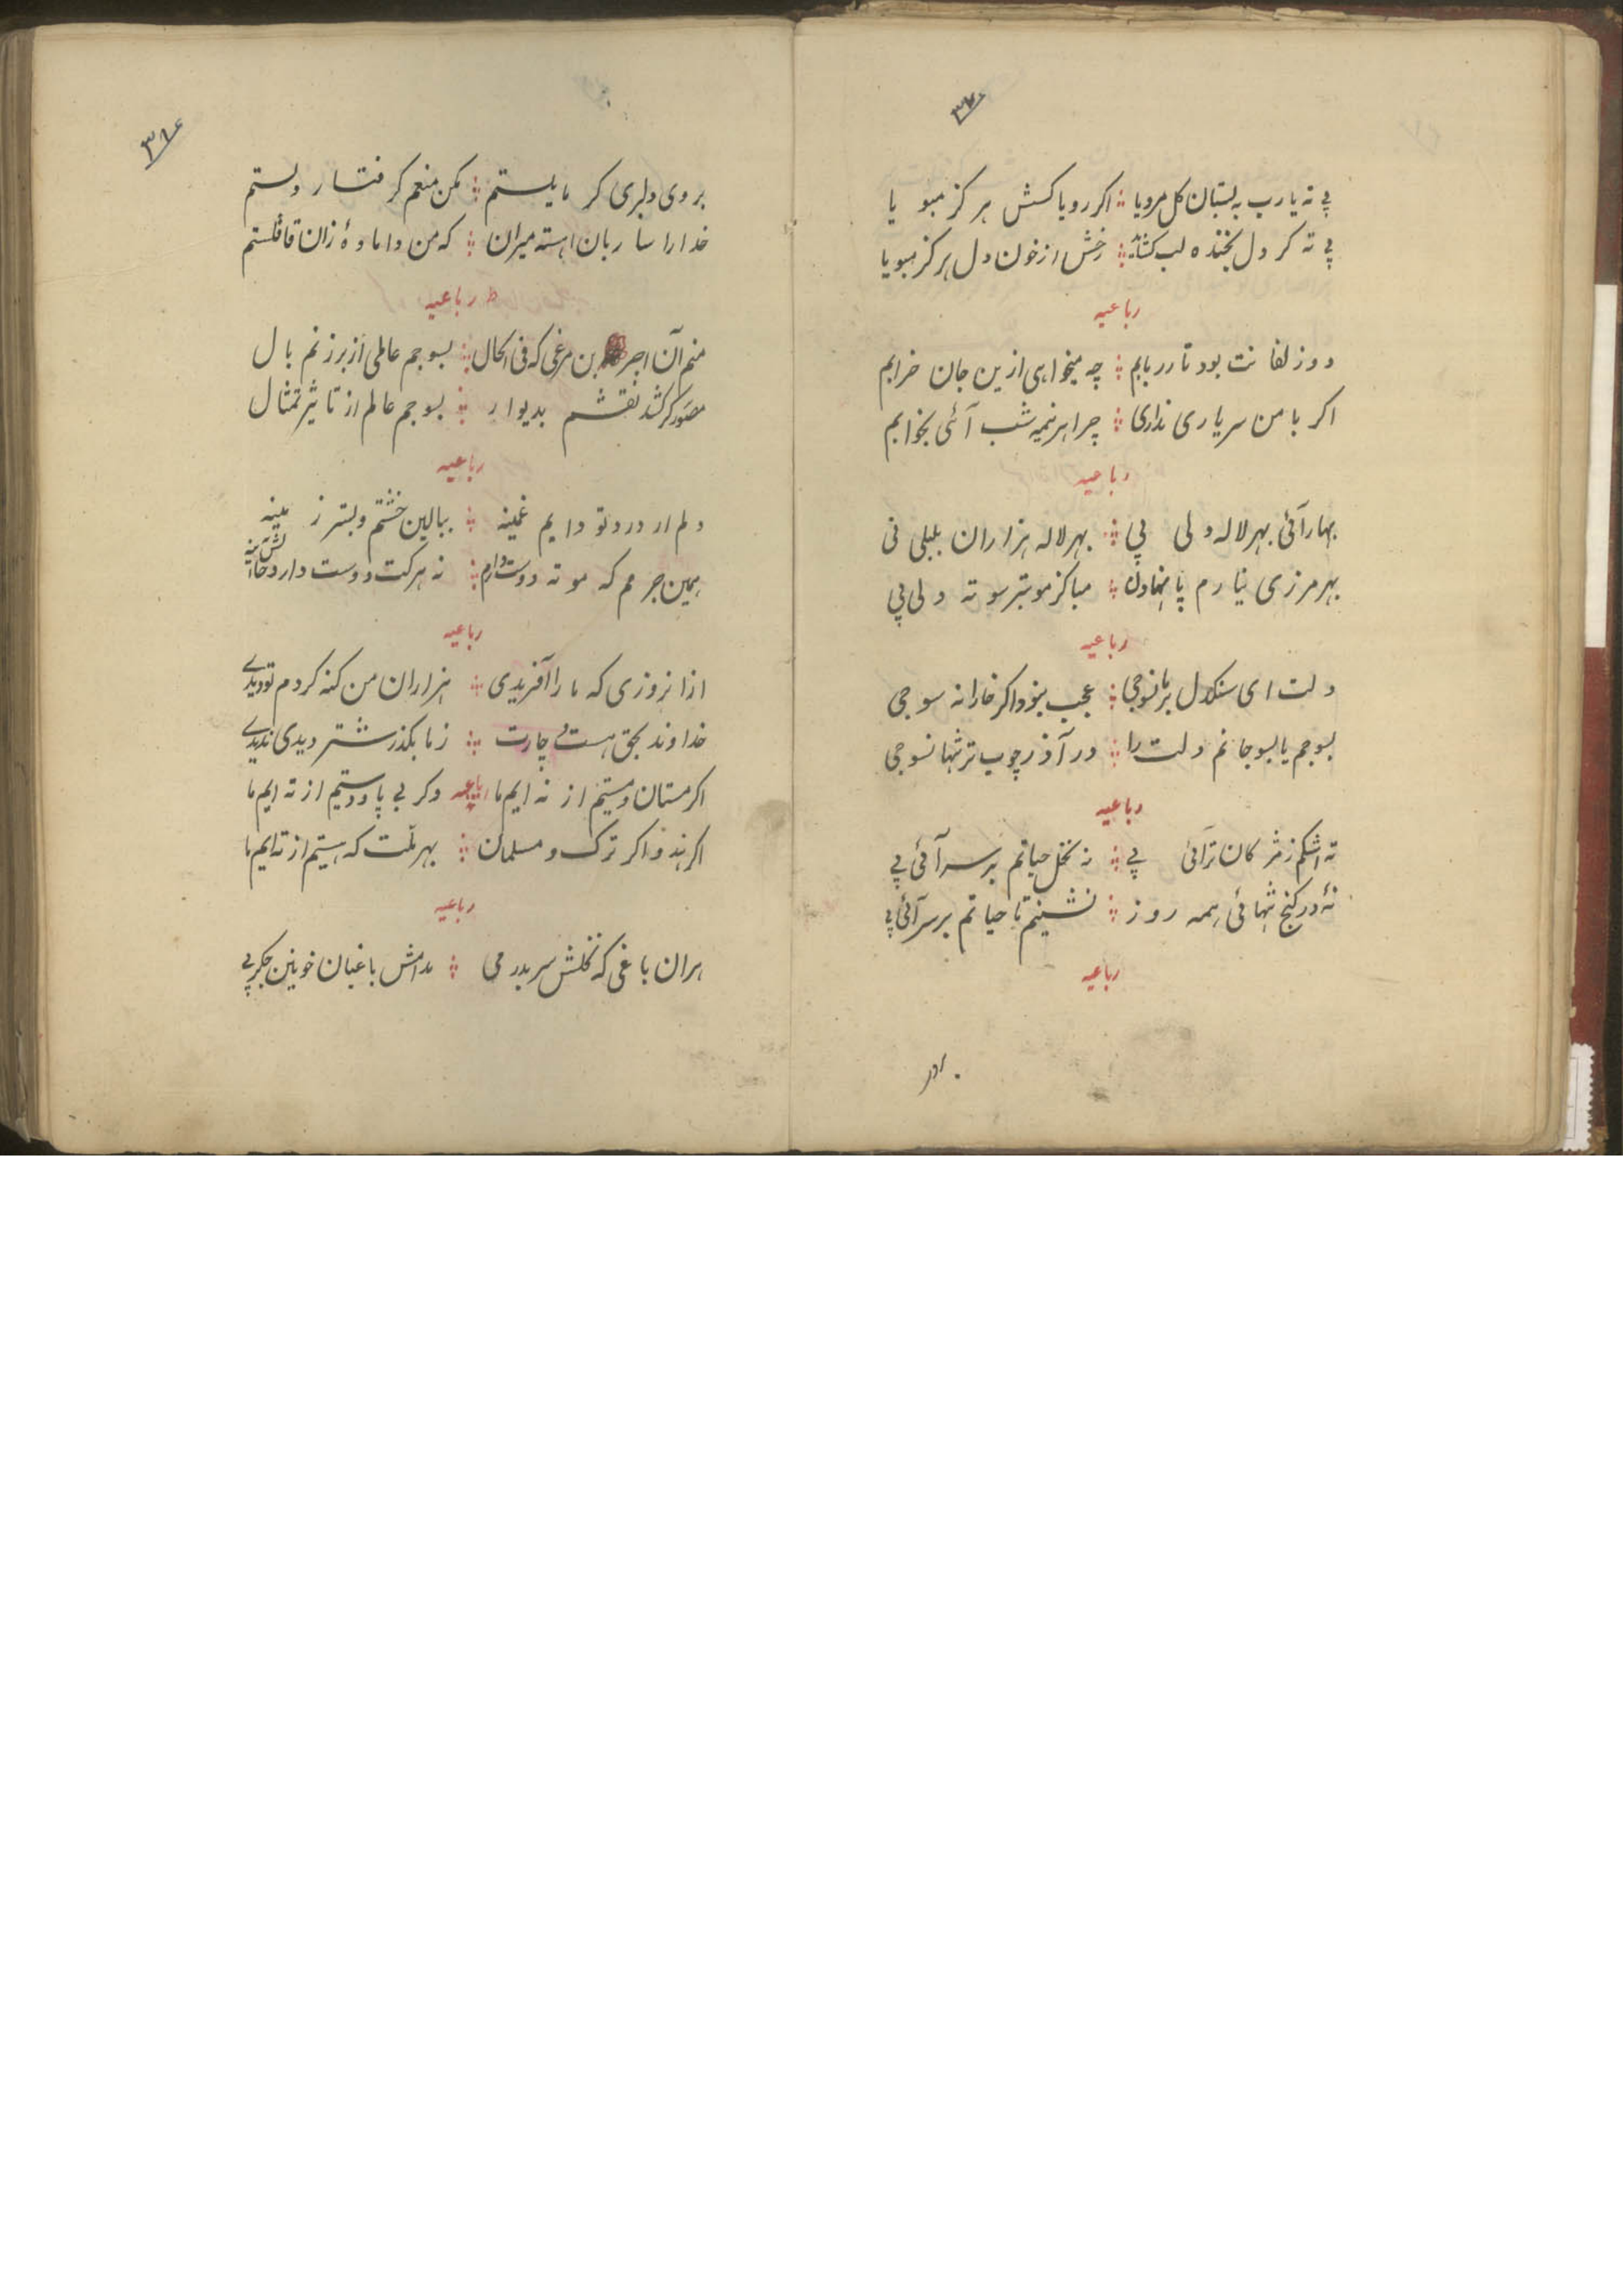 پی ته یا رب به بستان کل مرویا ؞ اکر رویا کسش هر کز مبو یا
پی ته کر دل بخنده لب کشائه ؞ رخش از خون دل هر کز مبویا
رباعیه
دو زلفا نت بود تار ربابم ؞ چه میخواهی ازین جان خرابم
اکر با من سر یاری نداری ؞ چرا هر نیمه شب آئی بخوابم
رباعیه
بهار آئی بهر لاله ولی پی ؞ بهر لاله هزاران بلبلی نی
بهر مرزی نیارم پا نهادن ؞ مباکز مو بتر سوته دلی پی
رباعیه
دلت ای سنکدل بر ما نسوجی ؞ عجب بنود اکر خارا نه سوجی
بسوجم یا بسوجانم دلت را ؞ در آذر چوب تر تنها نسوجی
رباعیه
ته اشکم ز مژکان تر آئی پی ؞ نه نخل حیاتم بر سر آئی پی
نهٔ در کنج تنهائی همه روز ؞ نشینم تا حیاتم بر سر آئی پی
رباعیه
۳۸۶
بروی دلبری کر مایلستم ؞ مکن منعم کر فتار دلستم
خدارا ساربان اهسته میران ؞ که من واماندهٔ زان قافلستم
رباعیه
منم آن اجر بن مرغی که فی الحال ؞ بسوجم عالمی از بر زنم بال
مصور کر کشد نقشم بدیوار ؞ بسوجم عالم از تاثیر تمثال
رباعیه
دلم از درد تو دایم غمینه ؞ ببالین خشتم و بستر زمینه
همین جرمم که مو ته دوست دارم ؞ نه هر کت دوست دارد حالش اینه
رباعیه
ازانروزی که ما را آفریدی ؞ هزاران من کنه کردم تو دیدی
خداوند بحق هست چارت ؞ ز ما بکذر شتر دیدی ندیدی
اکر مستان و مستیم از ته ایم ما رباعیه وکر بی پا ودستیم از ته ایم ما
اکر هند و اکر ترک و مسلمان ؞ بهر ملت که هستیم از ته ایم ما
رباعیه
هران باغی که نخلش سر بدر می ؞ مدامش باغبان خونین جکر پی